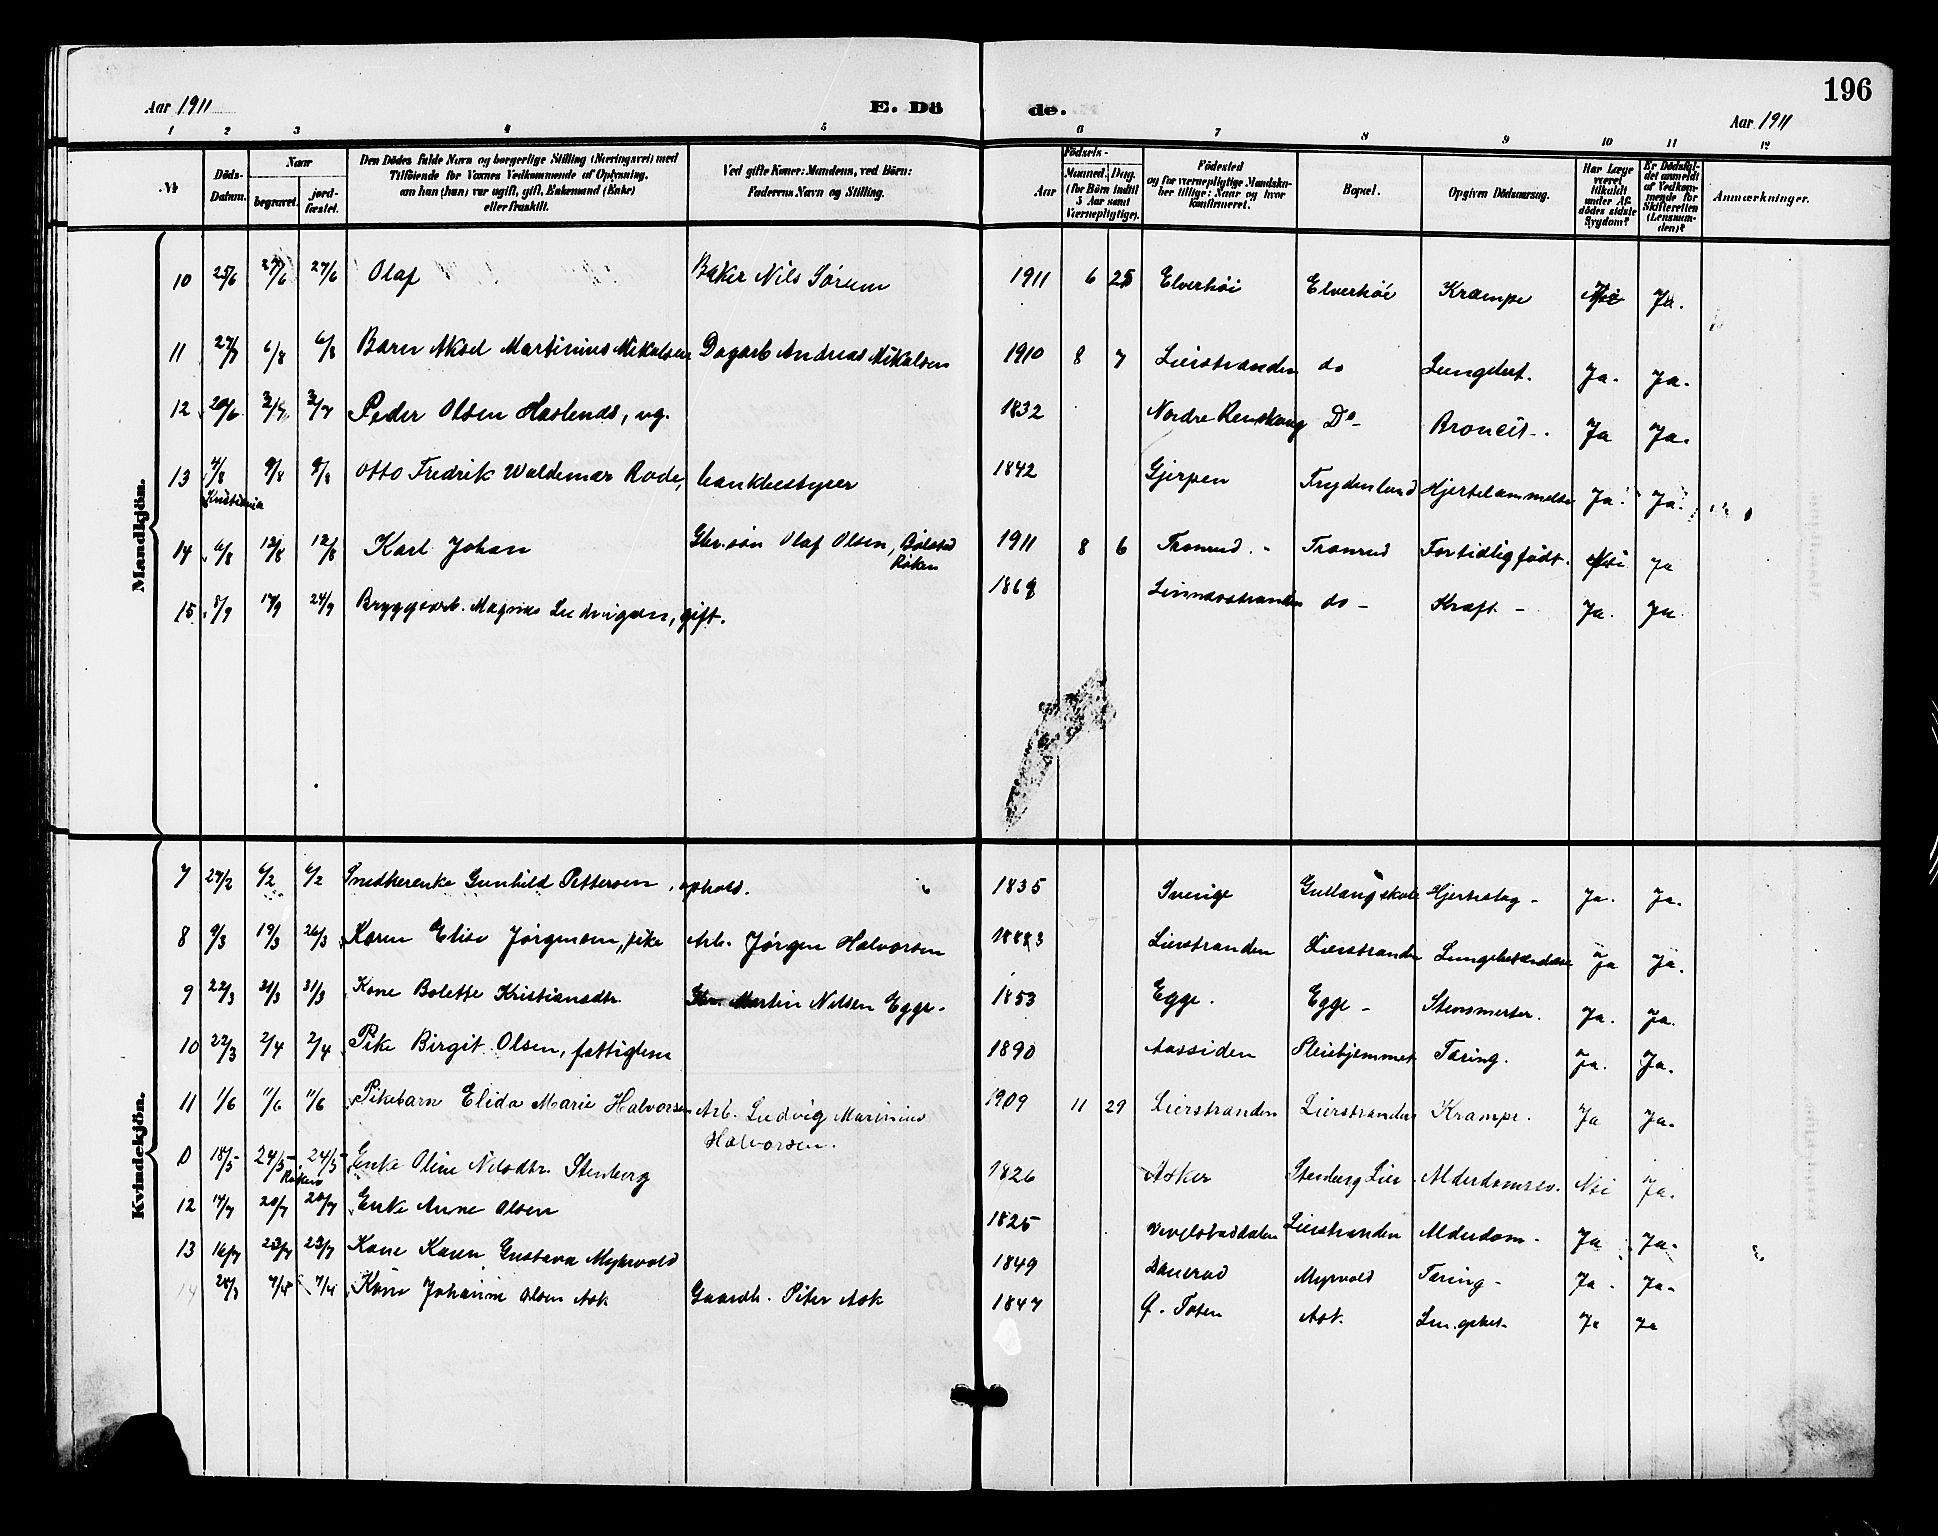 196
Aar 1911 E. Dö de. Aar 1911
1 2 3 4 5 6 7 8 9 10 11 12
№ Döds-Datum. Naar begravet. jord-fæstet. Den Dödes fulde Navn og borgerlige Stilling (Næringsvei) med Tilföiende for Voxnes Vedkommende af Oplysning, om han (hun) var ugift, gift, Enkemand (Enke) eller fraskilt. Ved gifte Koner: Mandens, ved Börn: Faderens Navn og Stilling. Födsels- Aar Maaned. Dag. (for Börn indtil 5 Aar samt Værnepligtige). Födested og for værnepligtige Mandskaber tillige: Naar og hvor konfirmeret. Bopæl. Opgiven Dödsaarsag. Har Læge været tilkaldt under Afdödes sidste Sygdom? Er Dödsfaldet anmeldt af Vedkommende for Skifteretten (Lensmanden)? Anmærkninger.
Mandkjön.
10 25/6 27/6 27/6 Olaf Baker Nils Sörum 1911 6 25 Elverhöi Elverhöi Krampe Nei Ja.
11 27/7 6/8 6/8 Barn Aksel Martinius Mikalsen Dagarb Andreas Mikalsen 1910 8 7 Lierstranden do Lungebet. Ja. Ja.
12 20/6 2/7 2/7 Peder Olsen Haslends, ug. 1832 Nordre Renskaug Do - Broncit -. Ja Ja.
13 4/8 Kristiania 9/8 9/8 Otto Fredrik Waldemar Rode, bankbestyrer 1842 Gjerpen Frydenlund Hjertelammelse Ja. Ja.
14 6/8 12/8 12/8 Karl Johan Gbr.sön Olaf Olsen, Bölstad Röken 1911 8 6 Tranrud. - Tranrud Fortidlig födt. Nei Ja
15 8/9 17/9 24/9 Bryggearb. Magnus Ludvigsen, gift. 1869 Linnesstranden do - Kræft - Ja. Ja
Kvindekjön.
7 27/2 6/2 6/2 Snedkerenke Gunhild Pettersen, ophold. 1835 Sverige Gullaugskole Hjerteslag - Ja. Ja.
8 9/3 19/3 26/3 Karen Elise Jörgensen, pike Arb. Jörgen Halvorsen 1883 Lierstranden Lierstranden Lungebetændelse Ja Ja.
9 22/3 31/3 31/3 Kone Bolette Kristiansdtr. Martin Nilsen Egge - 1853 Egge. Egge - Stensmerter. Ja. Ja.
10 22/3 2/4 2/4 Pike Birgit Olsen, fattiglem 1890 Aassiden Pleiehjemmet Tæring. Ja. Ja.
11 1/6 11/6 11/6 Pikebarn Elida Marie Halvorsen Arb. Ludvig Marinius Halvorsen. 1909 11 29 Lierstranden Lierstranden Krampe. Ja Ja.
0 18/5 24/5 Röken 24/5 Enke Oline Nilsdtr. Stenberg 1826 Asker Stenberg Lier Alderdomssv. Nei Ja.
12 14/7 20/7 20/7 Enke Anne Olsen 1825 Lierstranden Alderdom - Ja Ja.
13 16/7 23/7 23/7 Kone Karen Gustava Myhrvold 1849 Myrvold Tæring - Ja. Ja.
14 28/3 Kone Johanne Olsen Ask Gaardb. Peter Ask 1847 Ö. Toten Ask. Lungebet. Ja Ja